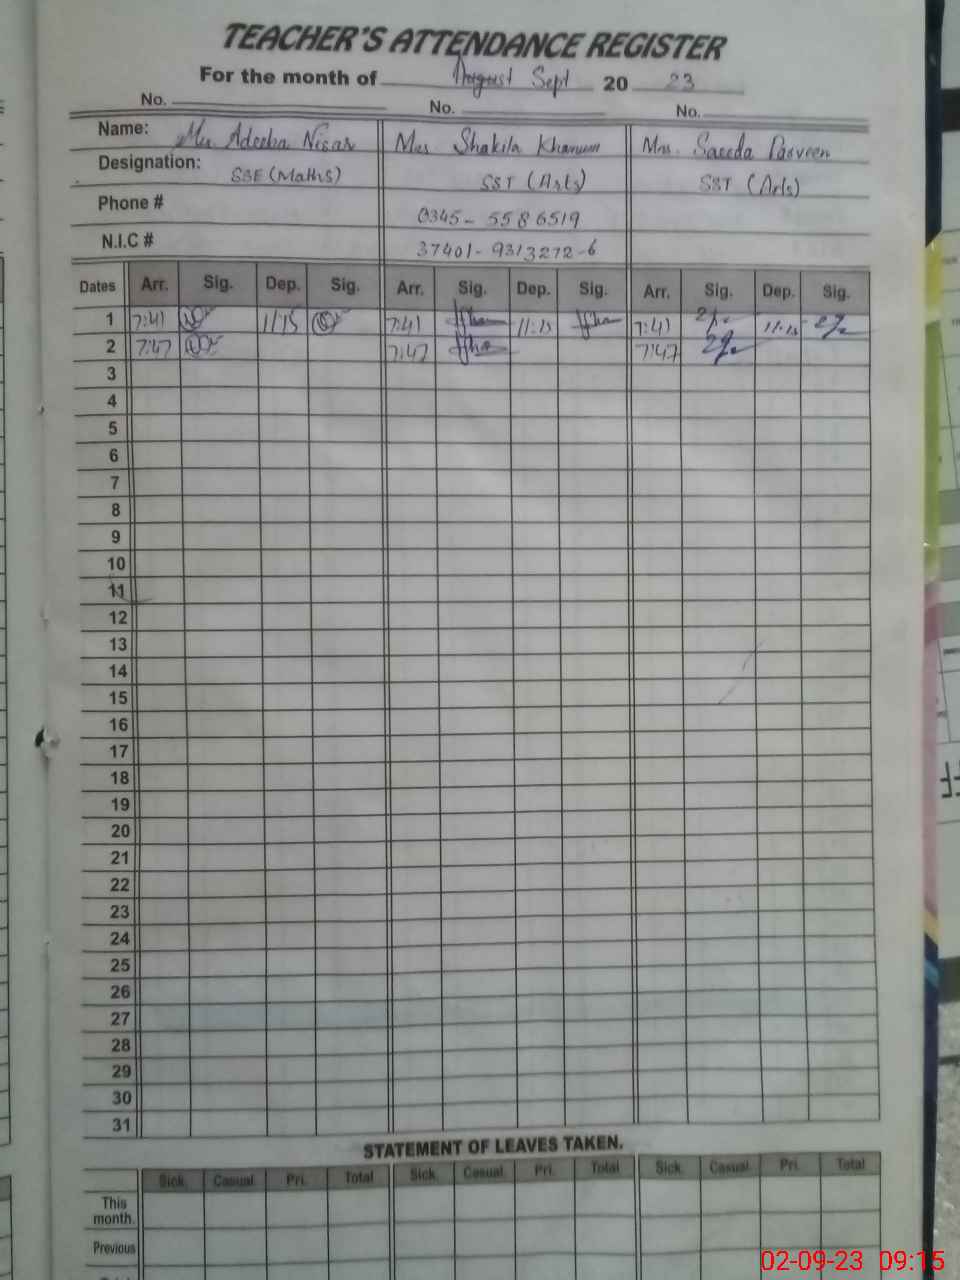 TEACHER'S ATTENDANCE REGISTER
For the month of August Sept 20 23
No. No. No.
Name: Adeeba Nisar Mrs Shakila Khanum Mrs. Saeeda Parveen
Designation: SSE (Maths) SST (Arts) SST (Arts)
Phone # 0345-5586519
N.I.C # 37401-9313272-6
Dates Arr. Sig. Dep. Sig. Arr. Sig. Dep. Sig. Arr. Sig. Dep. Sig.
1 7:41 11:15 7:41 11:15 7:41 11:15
2 7:47 7:47 7:47
3
4
5
6
7
8
9
10
11
12
13
14
15
16
17
18
19
20
21
22
23
24
25
26
27
28
29
30
31
STATEMENT OF LEAVES TAKEN.
Sick Casual Pri. Total Sick Casual Pri. Total Sick Casual Pri. Total
This
month.
Previous
02-09-23 09:15